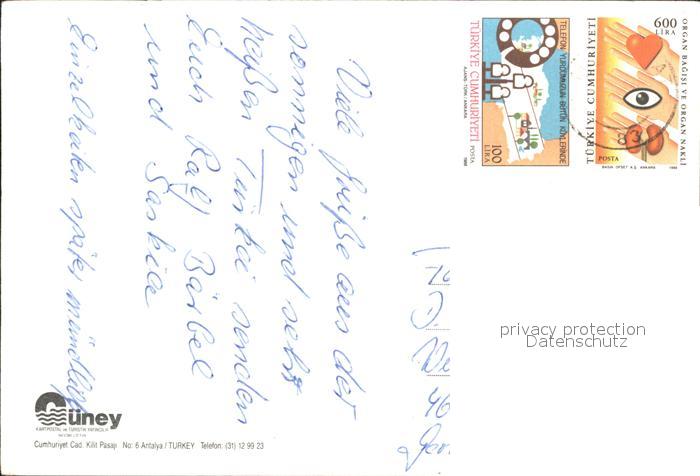 Viele Grüße aus der
sonnigen und sehr
heißen Türkei senden
Euch Ralf Bärbel
und Saskia
Einzelheiten später mündlich
TELEFON YURDUMUZUN BÜTÜN KÖYLERİNDE
TÜRKİYE CUMHURİYETİ
AJANS-TÜRK / ANKARA
POSTA
1988
100
LİRA
600
LİRA
ORGAN BAĞIŞI VE ORGAN NAKLİ
TÜRKİYE CUMHURİYETİ
POSTA
BASIM OFSET A.Ş. ANKARA
1988
privacy protection
Datenschutz
46
Güney
KARTPOSTAL ve TURİSTİK YAYINCILIK
Cumhuriyet Cad. Kilit Pasajı No: 6 Antalya / TURKEY Telefon: (31) 12 99 23